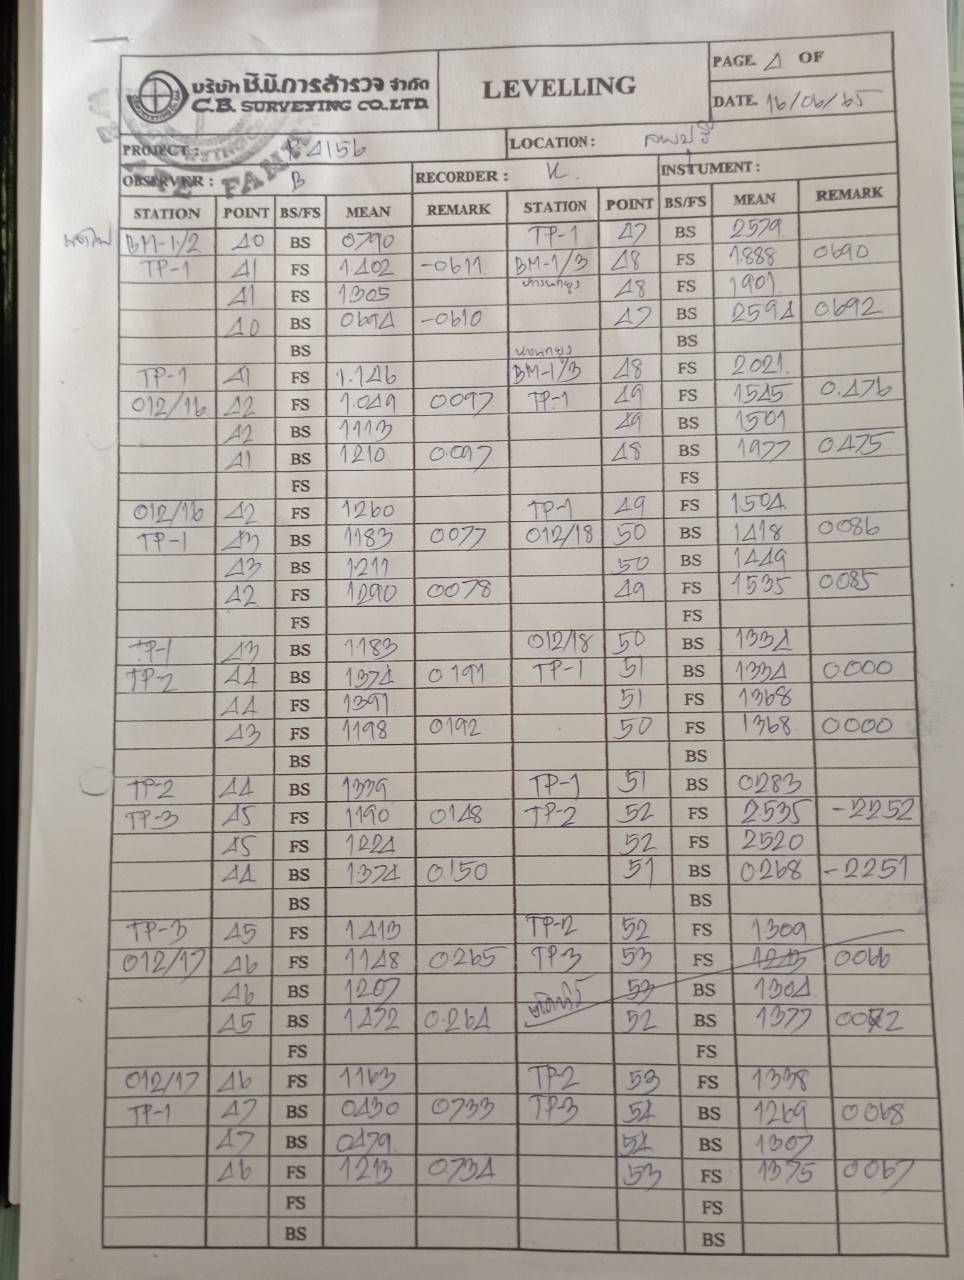 บริษัท ซี.บี.การสำรวจ จำกัด
C.B. SURVEYING CO.,LTD.
LEVELLING
PAGE. 4 OF
DATE. 16/06/65
PROJECT :
LOCATION : ลพบุรี
OBSERVER : B RECORDER : K. INSTUMENT :
STATION POINT BS/FS MEAN REMARK STATION POINT BS/FS MEAN REMARK
BM-1/2 40 BS 0790 TP-1 47 BS 2579
TP-1 41 FS 1402 -0611 BM-1/3 48 FS 1888 0690
41 FS 1305 48 FS 1901
40 BS 0694 -0610 47 BS 2594 0692
BS BS
TP-1 41 FS 1.146 BM-1/3 48 FS 2021
012/16 42 FS 1.049 0097 TP-1 49 FS 1545 0.476
42 BS 1113 49 BS 1501
41 BS 1210 0.097 48 BS 1977 0.475
FS FS
012/16 42 FS 1260 TP-1 49 FS 1504
TP-1 43 BS 1183 0077 012/18 50 BS 1418 0086
43 BS 1211 50 BS 1449
42 FS 1290 0078 49 FS 1535 0085
FS FS
TP-1 43 BS 1183 012/18 50 BS 1334
TP-2 44 BS 1374 0191 TP-1 51 BS 1334 0000
44 FS 1391 51 FS 1368
43 FS 1198 0192 50 FS 1368 0000
BS BS
TP-2 44 BS 1339 TP-1 51 BS 0283
TP-3 45 FS 1190 0148 TP-2 52 FS 2535 -2252
45 FS 1224 52 FS 2520
44 BS 1374 0.150 51 BS 0268 -2251
BS BS
TP-3 45 FS 1413 TP-2 52 FS 1309
012/17 46 FS 1148 0265 TP-3 53 FS 1243 0066
46 BS 1207 53 BS 1304
45 BS 1472 0.264 52 BS 1377 0072
FS FS
012/17 46 FS 1163 TP-2 53 FS 1338
TP-1 47 BS 0430 0733 TP-3 54 BS 1269 0068
47 BS 0479 54 BS 1307
46 FS 1213 0.734 53 FS 1375 0067
FS FS
BS BS